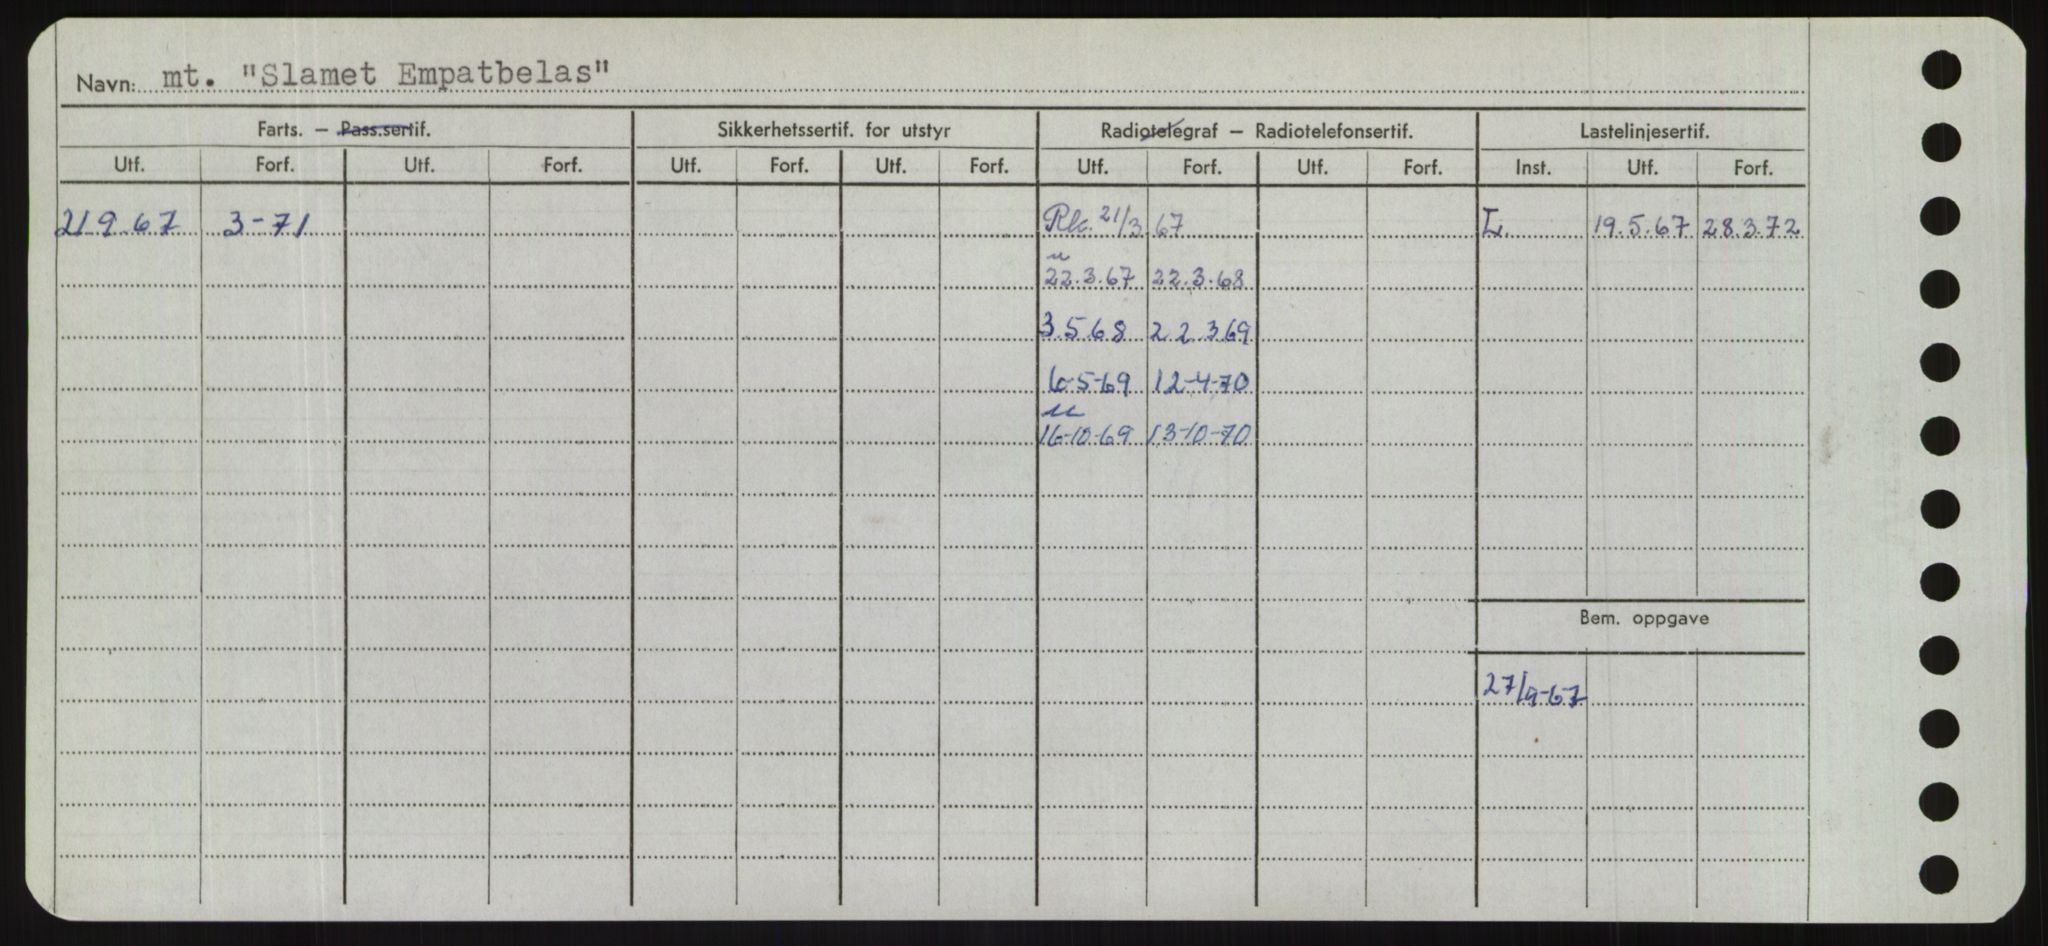 Navn: mt. "Slamet Empatbelas"
Farts. — Pass.sertif. Sikkerhetssertif. for utstyr Radiotelegraf — Radiotelefonsertif. Lastelinjesertif.
Utf. Forf. Utf. Forf. Utf. Forf. Utf. Forf. Utf. Forf. Utf. Forf. Inst. Utf. Forf.
21.9.67 3-71 Rk. 21/3.67 L. 19.5.67 28.3.72
u
22.3.67 22.3.68
3.5.68 22.3.69
6-5-69 12-4-70
u
16-10-69 13-10-70
Bem. oppgave
27/9-67